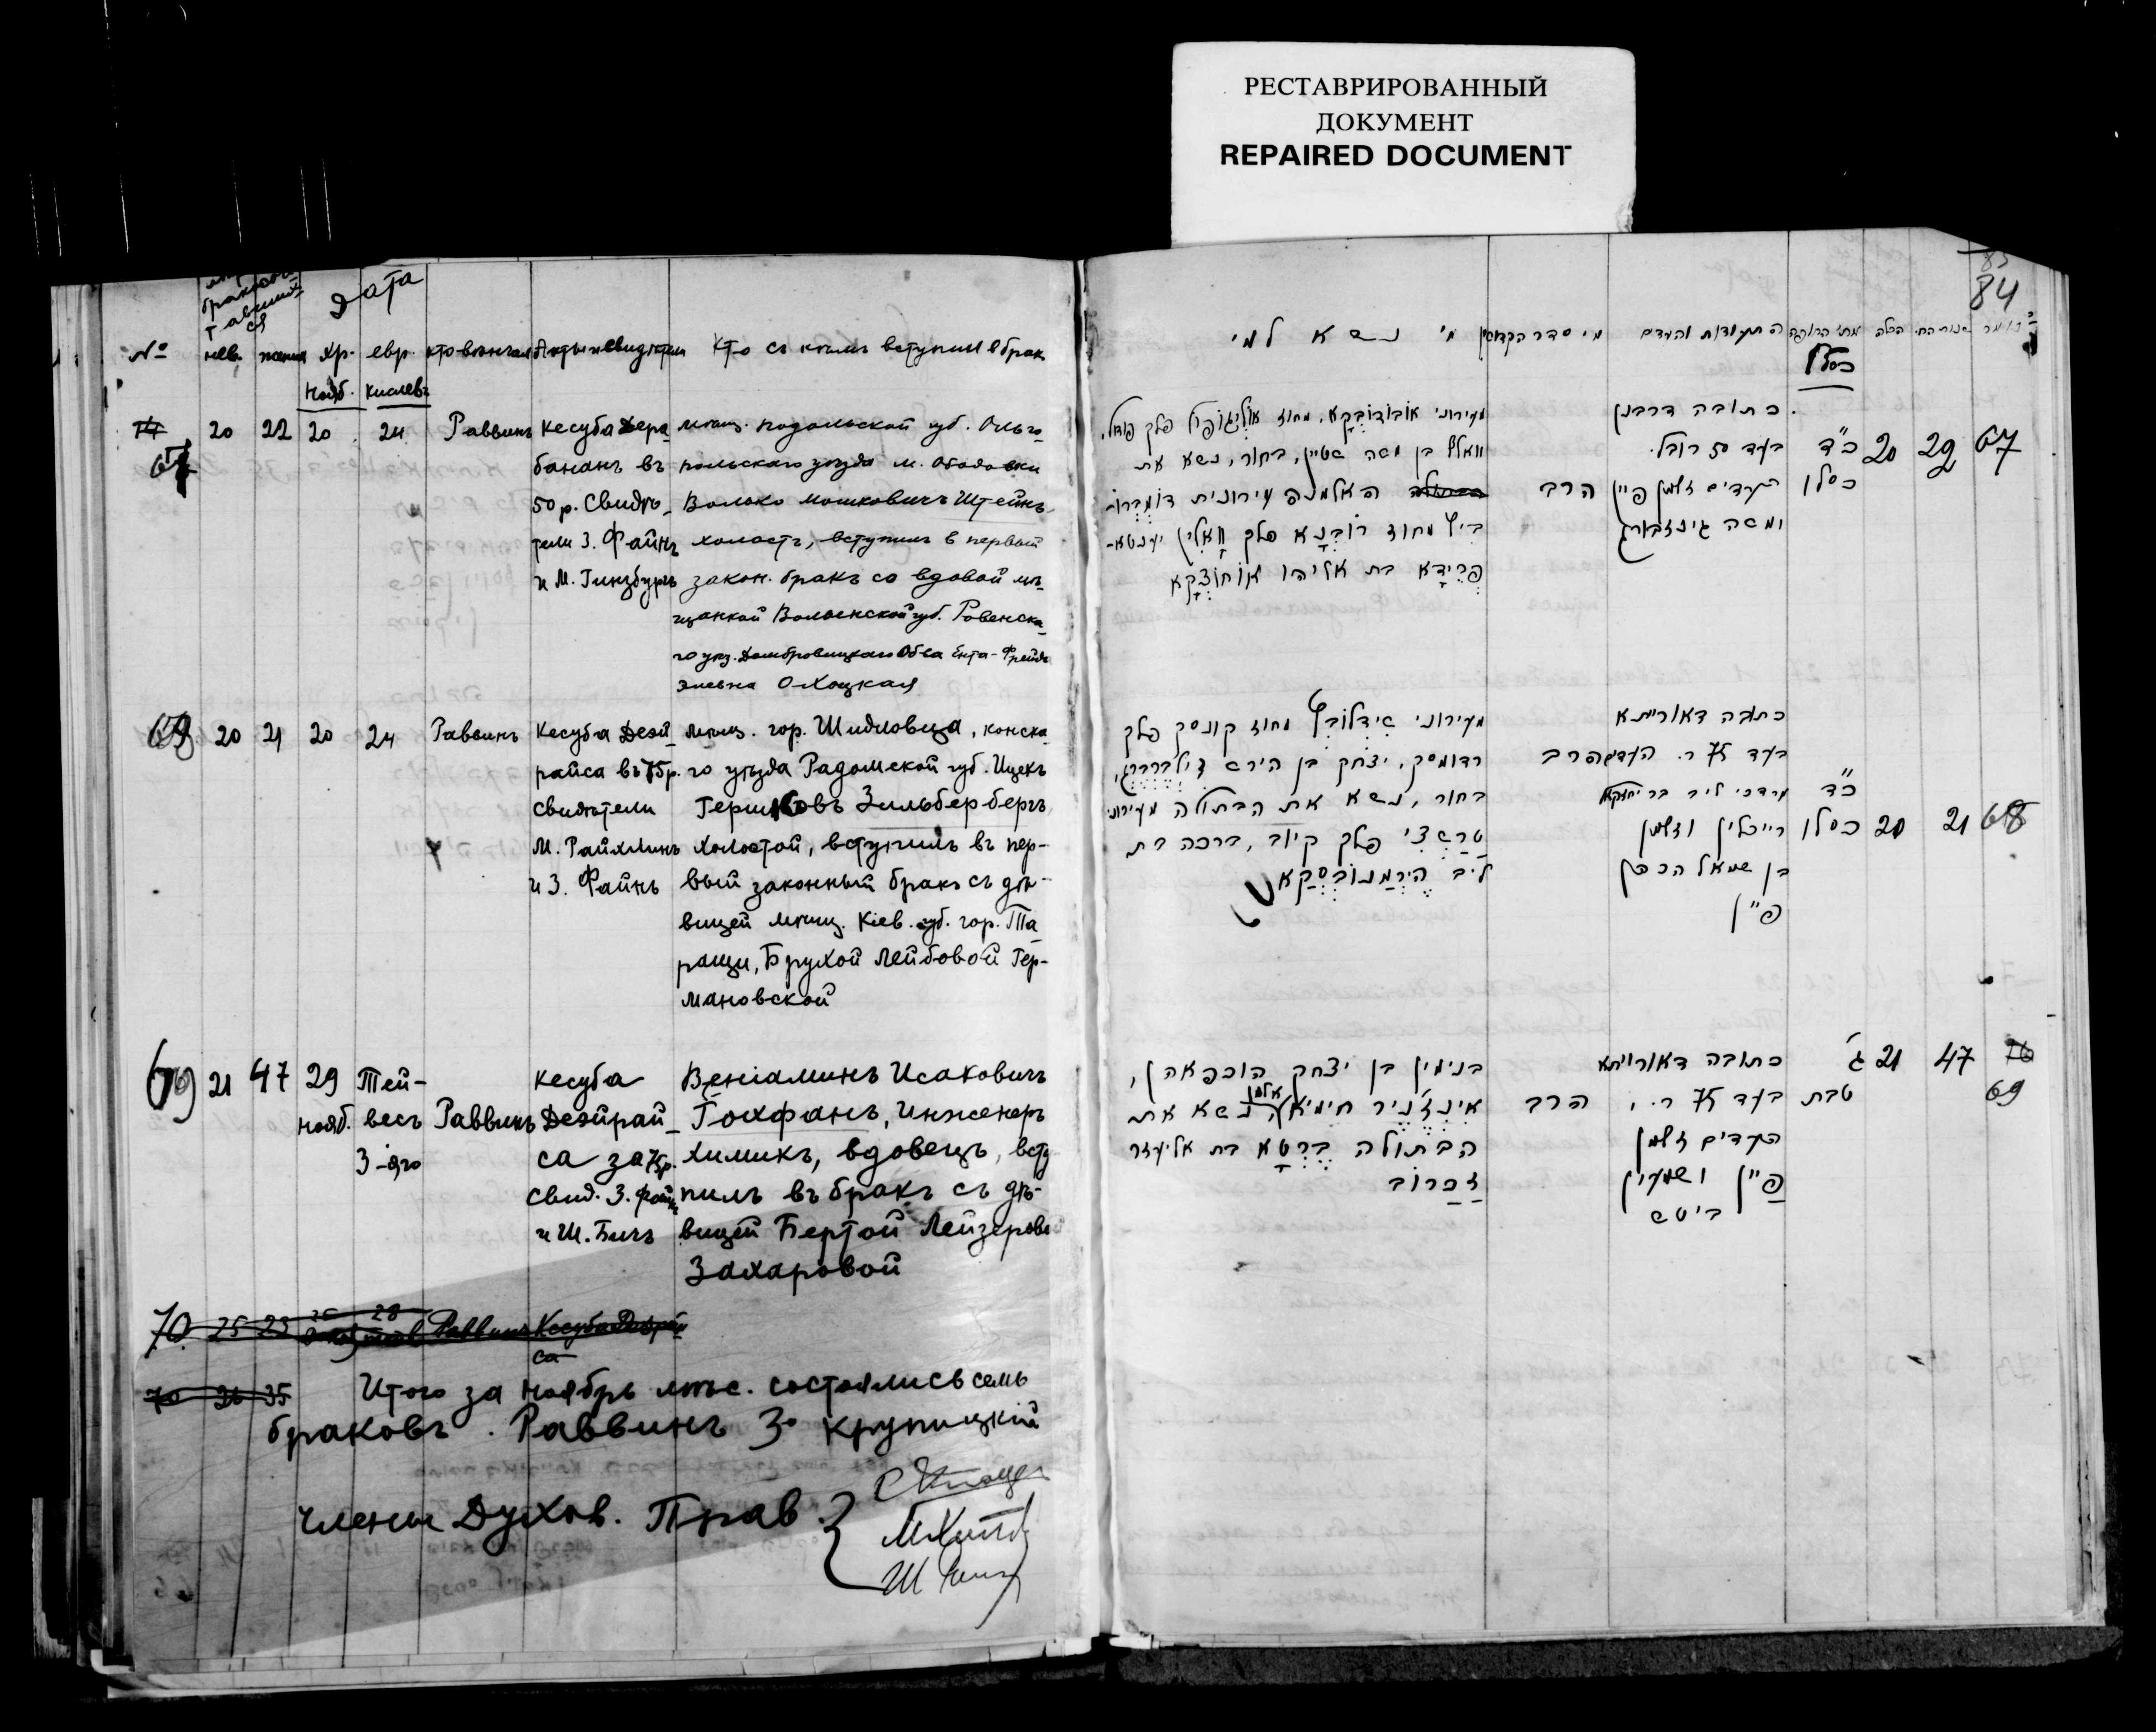 РЕСТАВРИРОВАННЫЙ
ДОКУМЕНТ
REPAIRED DOCUMENT
дата
№ нев. жених хр. евр. кто венчал Акты и свидѣтели Кто съ кѣмъ вступилъ в бракъ
Нояб. Кислевъ
20 22 20 24 Раввинъ Кесуба Дера
67
бананъ въ
50 р. Свидѣ-
тели З. Файнъ
и М. Гинзбургъ
мѣщ. Подольской губ. Ольго
польскаго уѣзда м. Ободовки
Волько Мошковичъ Штейнъ
холостъ, вступилъ в первый
закон. бракъ со вдовой мѣ-
щанкой Волынской губ. Ровенска-
го уѣз. Домбровицкаго Об-ва Ента-Фрейда
Элевна Охоцкая
68 20 21 20 24 Раввинъ Кесуба Деэй-
райса въ 75 р.
свидѣтели
М. Райхлинъ
и З. Файнъ
мѣщ. гор. Шидловца, конска-
го уѣзда Радомской губ. Ицекъ
Гершковъ Зильбер-бергъ
холостой, вступилъ въ пер-
вый законный бракъ съ дѣ-
вицей мѣщ. Кіев. губ. гор. Та-
ращи, Брухой Лейбовой Гер-
мановской
69 21 47 29 Тей-
нояб. весъ Раввинъ
3-яго
Кесуба
Деэйрай-
са за 75 р.
Свид. З. Файнъ
и Ш. Бичъ
Веніаминъ Исаковичъ
Гохфанъ, инженеръ
химикъ, вдовецъ, всту
пилъ въ бракъ съ дѣ-
вицей Бертой Лейзеровой
Захаровой
70 25 23 Раввинъ Кесуба Деэрай
са
70 26 35 Итого за Ноябрь мѣс. состоялись семь
браковъ. Раввинъ З. Крупицкій
Члены Духов. Прав.
84
מי נשא למי
מי סדר הקדושין
כסלו
67 29 20 כ״ד
כסלו
כתובה דרבנן
בעד 50 רובל.
העדים זלמן פיין
ומשה גינזבורג
הרב
מעירוני אובודובקא, מחוז אולגופול פלך פודול,
וואלף בן משה שטיין, בחור, נשא את
האלמנה עירונית דומברו-
ביץ מחוז רובנא פלך וואלין יענטא-
פרידא בת אליהו אוחוצקא
68 21 20 כ״ד
כסלו
כתובה דאורייתא
בעד 75 ר. העדים הרב
מרדכי ליב בר
רייכלין וזלמן
בן שמואל הכהן
פיין
מעירוני שידלובץ מחוז קונסק פלך
רדומסק, יצחק בן הירש זילברברג,
בחור, נשא את הבתולה מעירוני
טרשצי פלך קיוב, ברכה בת
ליב הירמנובסקא
69 47 21 ג׳
טבת
כתובה דאורייתא
בעד 75 ר., הרב
העדים זלמן
פיין ושמעון
ביטש
בנימין בן יצחק הוכפאהן,
אינזניר חימיא אלמן נשא את
הבתולה ברטא בת אליעזר
זכרוב